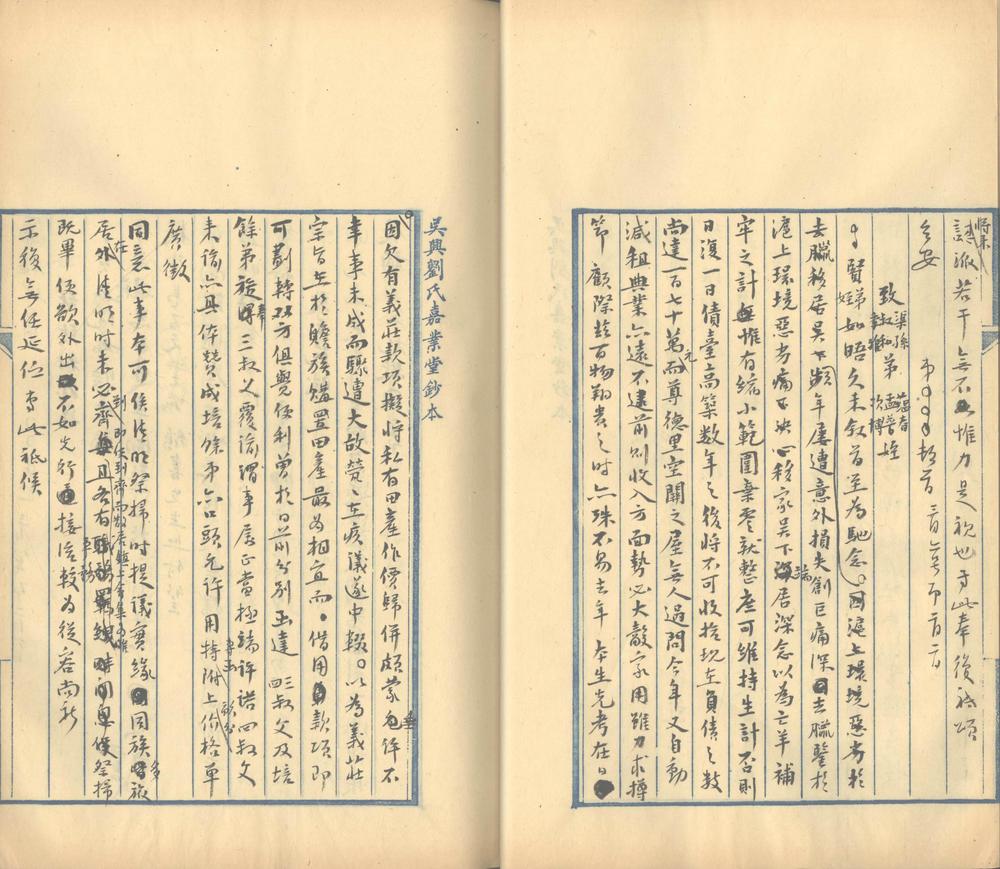 將來
認派若干無不惟力是視也專此奉復祗頌
台安
弟〇〇〇頓首 一月 日
致 渠孫 叔和 弟 蘊春 益普 次博 姪
〇〇賢弟姪如晤久未敘首至為馳念
去臘移居吳下頻年屢遭意外損失創巨痛深去臘鑒於
滬上環境惡劣痛下決心移家吳下端居深念以為亡羊補
牢之計惟有縮小範圍棄零就整庶可維持生計否則
日復一日債臺高築數年之後將不可收拾現在負債之數
尚達一百七十萬元而尊德里空關之屋無人過問今年又自動
減租典業亦遠不逮前則收入方面勢必大殺家用雖力求撙
節顧際茲百物翔貴之時亦殊不易去年 本生先考在日
吳興劉氏嘉業堂鈔本
因欠有義莊款項擬將私有田產作價歸併頗蒙 允許不
幸事未成而驟遭大故煢煢在疚議遂中輟〇以為義莊
宗旨在於贍族購置田產最為相宜而〇借用款項即
可劃轉雙方俱興便利曾於日前分別函達 四叔父及培
餘弟旋奉三叔父覆諭謂事屬正當極端許諾四叔父
來諭亦具体贊成培餘弟亦口頭允許用特附上價格單
廣徵
同意此事本可俟清明祭掃時提議實緣同族多旅
居在外清明時未必齊到即使到齊而數房難上會集
且各有事務祭掃
既畢便欲外出不如先行函接洽較為從容尚祈
示後無任延佇專此祗候